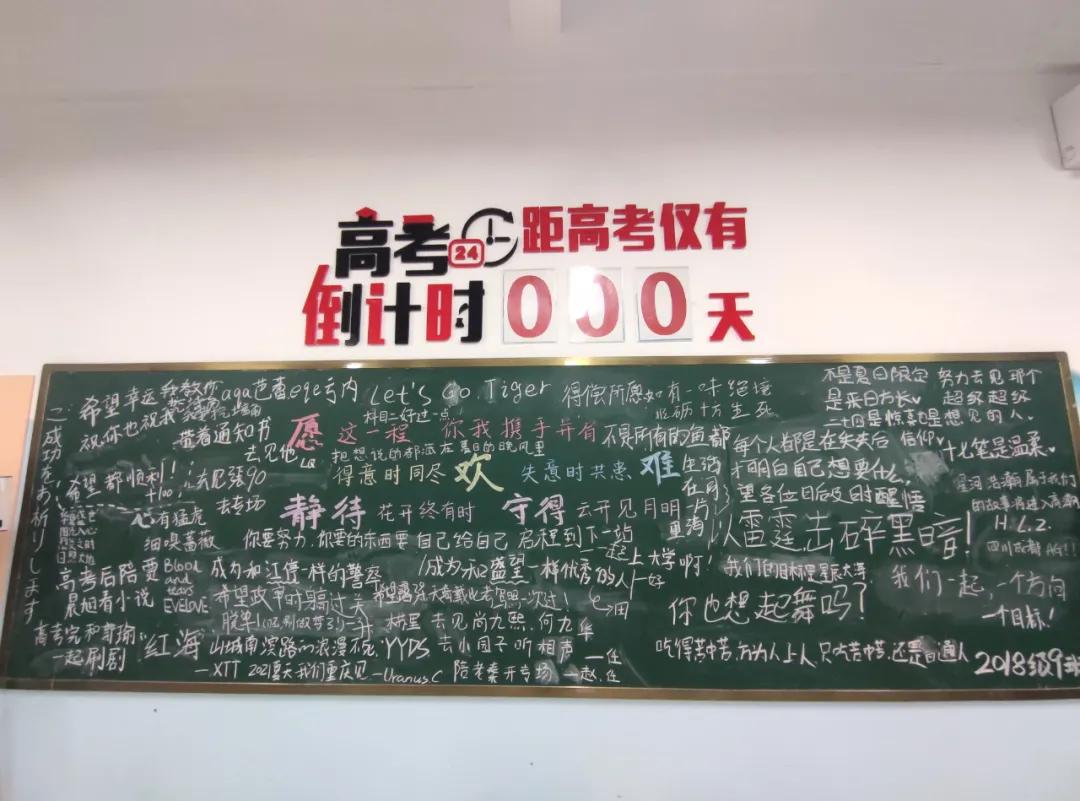 高考
24
倒计时
距高考仅有
000天
ご成功をお祈りします
希望幸运
祝你也祝我
带着通知书
去见他
希望都顺利！
去见张90
去专场
心有猛虎
细嗅蔷薇
高考后陪
看小说
Blood
and
tears
EVELOVE
一起刷剧
红海
Let's Go Tiger
得偿所愿如有一味绝境
科目二好过一点
愿这一程 你我携手并肩
把想说的都洒在夏日的晚风里
得意时同尽欢 失意时共患难
静待花开终有时 守得云开见月明
不是所有的鱼都
生活
在同
一片
里海
你要努力,你要的东西要自己给自己 启程到下一站
成为和江停一样的警察
成为和盛望一样优秀的人
一起上大学啊!
去见尚九熙,何九华
山城南滨路的浪漫不死
YYDS
去小园子听相声
XTT 2021夏天我们重庆见
Uranus.C
陪老秦开专场
不是夏日限定
是来日方长
努力去见那个
超级超级
想见的人。
每个人都是在失去后
才明白自己想要什么
望各位日后及时醒悟
信仰
十七笔是温柔
星河浩瀚属于我们
以雷霆击碎黑暗!
H.L.2.
四川成都 AG!!
我们的目标是星辰大海
你也想起舞吗?
我们一起,一个方向
一个目标!
吃得苦中苦,方为人上人 只吃苦中苦,还是普通人
2018级9班